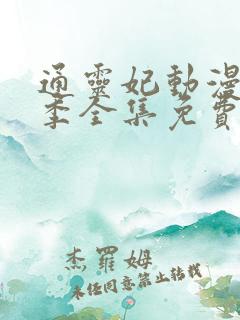 通靈妃動漫
季全集免費
杰羅姆
未经同意禁止转载